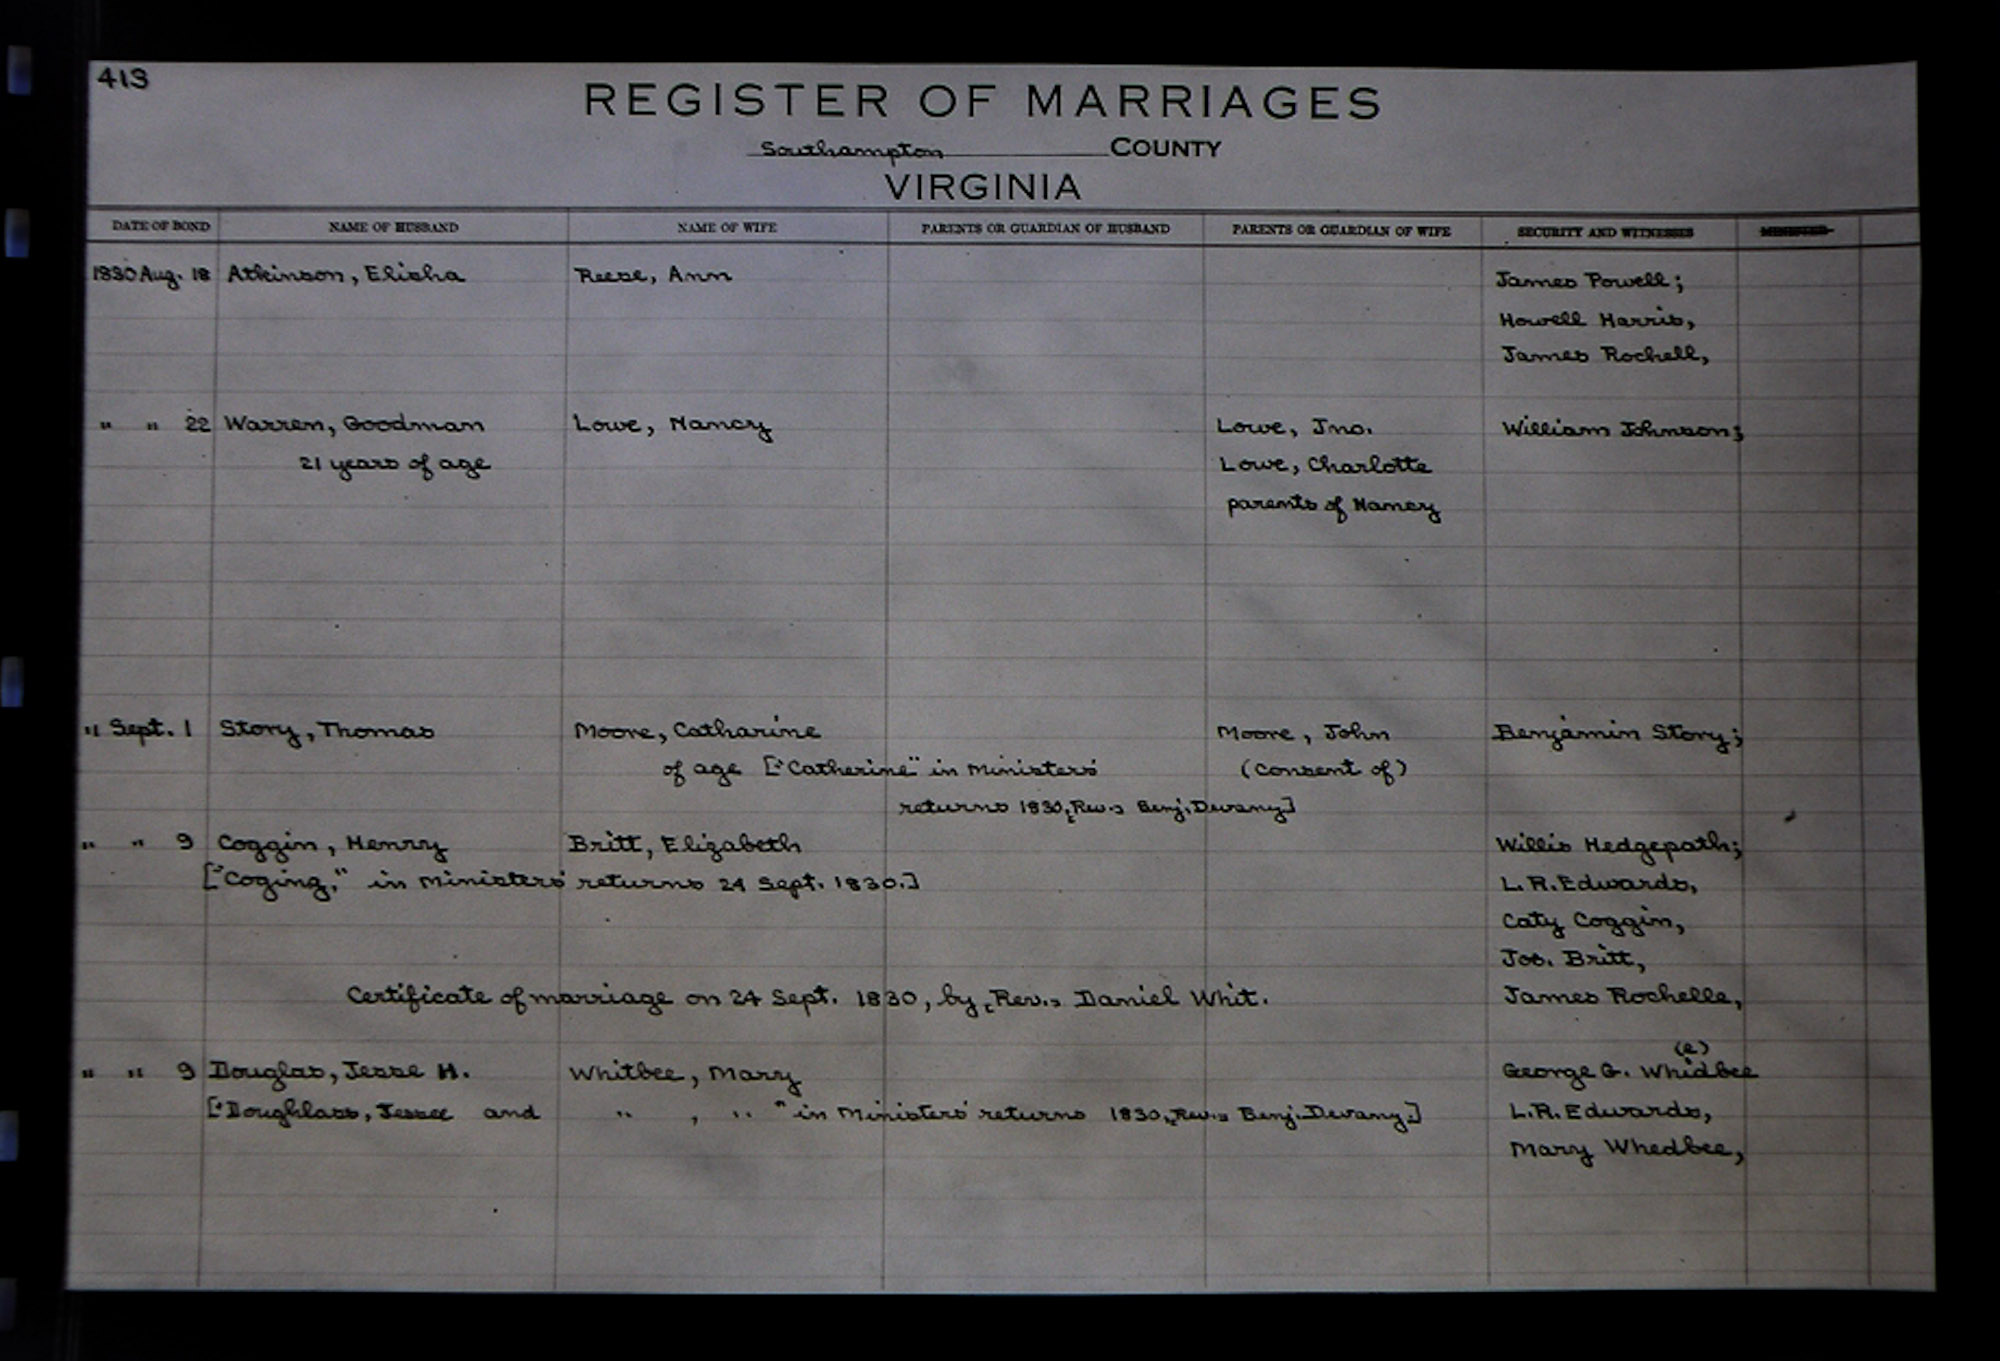 413
REGISTER OF MARRIAGES
Southampton COUNTY
VIRGINIA
DATE OF BOND NAME OF HUSBAND NAME OF WIFE PARENTS OR GUARDIAN OF HUSBAND PARENTS OR GUARDIAN OF WIFE SECURITY AND WITNESSES MINISTER
1830 Aug. 18 Atkinson, Elisha Reese, Ann James Powell;
Howell Harris,
James Rochell,
" " 22 Warren, Goodman Lowe, Nancy Lowe, Jno. William Johnson;
21 years of age Lowe, Charlotte
parents of Nancy
" Sept. 1 Story, Thomas Moore, Catharine Moore, John Benjamin Story;
of age ["Catherine" in Ministers' (consent of)
returns 1830, [Rev.] Benj. Devany]
" " 9 Coggin, Henry Britt, Elizabeth Willis Hedgepath;
["Coging," in Ministers' returns 24 Sept. 1830.] L.R. Edwards,
Caty Coggin,
Jos. Britt,
Certificate of marriage on 24 Sept. 1830, by [Rev.] Daniel Whit. James Rochelle,
(e)
" " 9 Douglas, Jesse H. Whitbee, Mary George G. Whidbee
["Doughlass, Jessee and " , " " in Ministers' returns 1830, [Rev.] Benj. Devany.] L.R. Edwards,
Mary Whedbee,